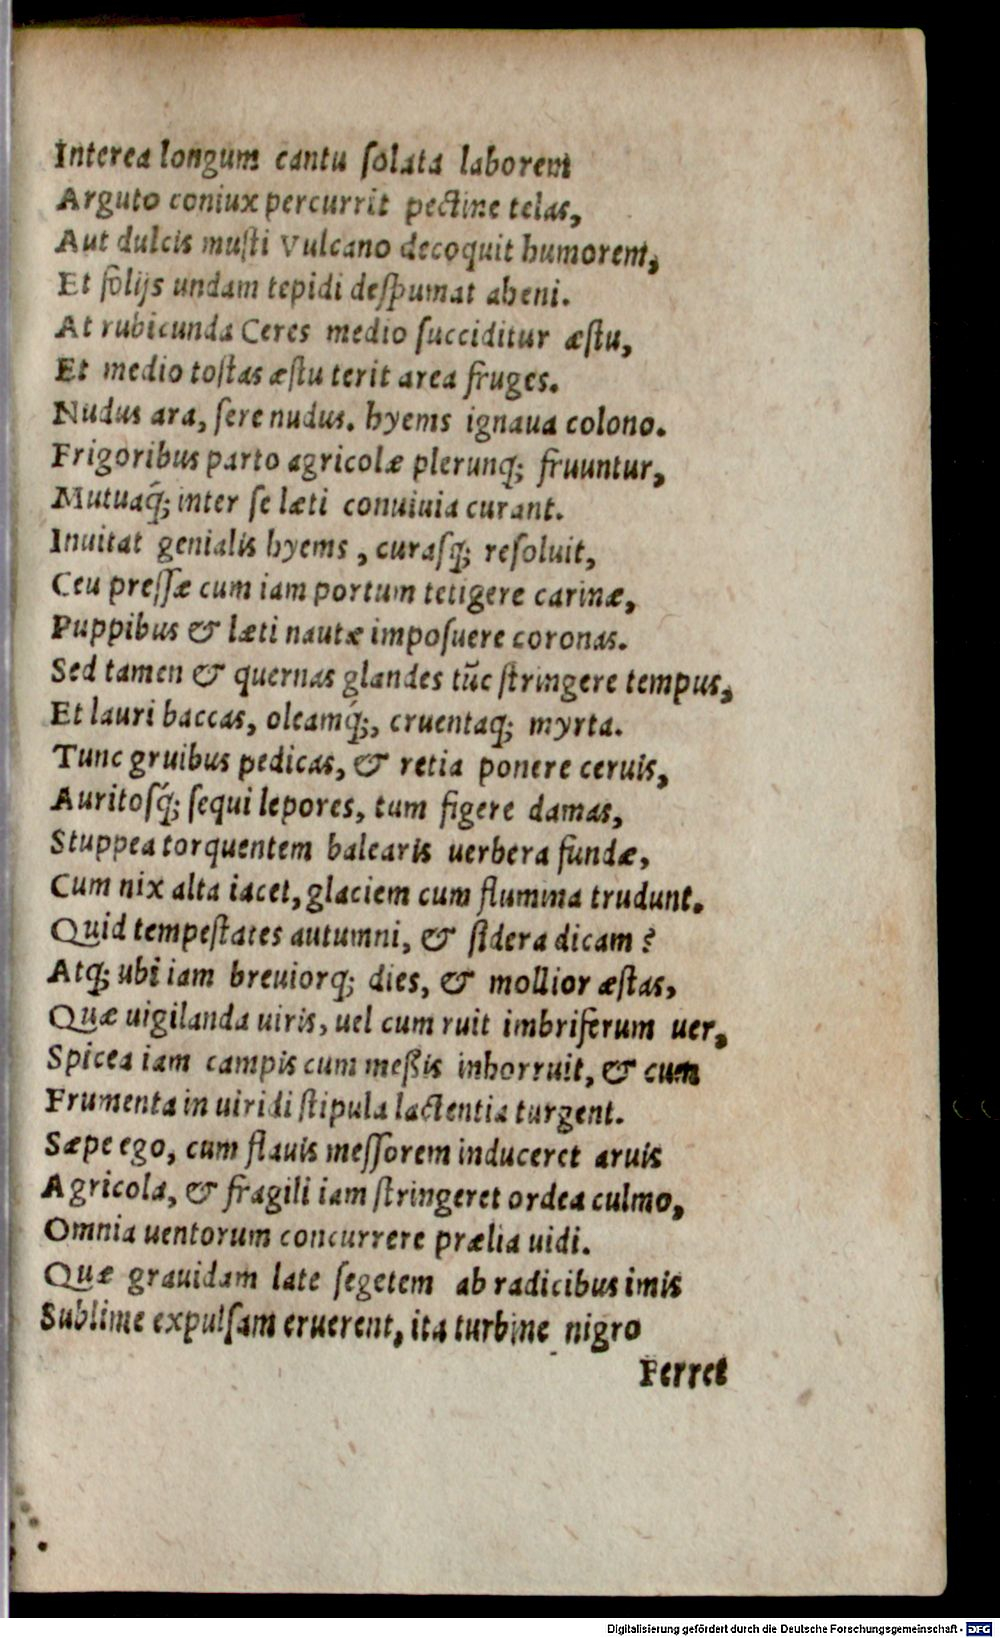 Interea longum cantu ſolata laborem
Arguto coniux percurrit pectine telas,
Aut dulcis muſti Vulcano decoquit humorem,
Et folijs undam tepidi deſpumat aheni.
At rubicunda Ceres medio ſucciditur æſtu,
Et medio toſtas æſtu terit area fruges.
Nudus ara, ſere nudus. hyems ignaua colono.
Frigoribus parto agricolæ plerunq; fruuntur,
Mutuaq́; inter ſe læti conuiuia curant.
Inuitat genialis hyems, curasq; reſoluit,
Ceu preſſæ cum iam portum tetigere carinæ,
Puppibus & læti nautæ impoſuere coronas.
Sed tamen & quernas glandes tūc ſtringere tempus,
Et lauri baccas, oleamq́;, cruentaq; myrta.
Tunc gruibus pedicas, & retia ponere ceruis,
Auritosq́; ſequi lepores, tum figere damas,
Stuppea torquentem balearis uerbera fundæ,
Cum nix alta iacet, glaciem cum flumina trudunt.
Quid tempeſtates autumni, & ſidera dicam?
Atq; ubi iam breuiorq; dies, & mollior æſtas,
Quæ uigilanda uiris, uel cum ruit imbriferum uer,
Spicea iam campis cum meßis inhorruit, & cum
Frumenta in uiridi ſtipula lactentia turgent.
Sæpe ego, cum flauis meſſorem induceret aruis
Agricola, & fragili iam ſtringeret ordea culmo,
Omnia uentorum concurrere prælia uidi.
Quæ grauidam late ſegetem ab radicibus imis
Sublime expulſam eruerent, ita turbine nigro
Ferret
Digitalisierung gefördert durch die Deutsche Forschungsgemeinschaft - DFG